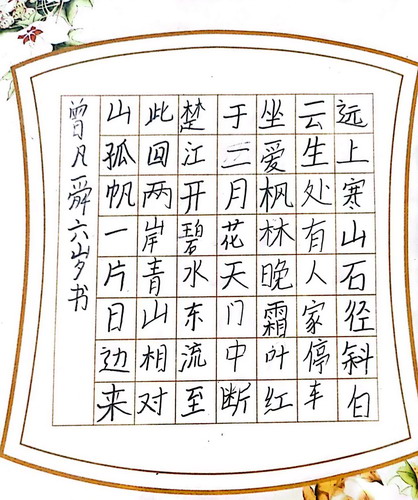 远上寒山石径斜白
云生处有人家停车
坐爱枫林晚霜叶红
于二月花天门中断
楚江开碧水东流至
此回两岸青山相对
山孤帆一片日边来
曾凡舜六岁书